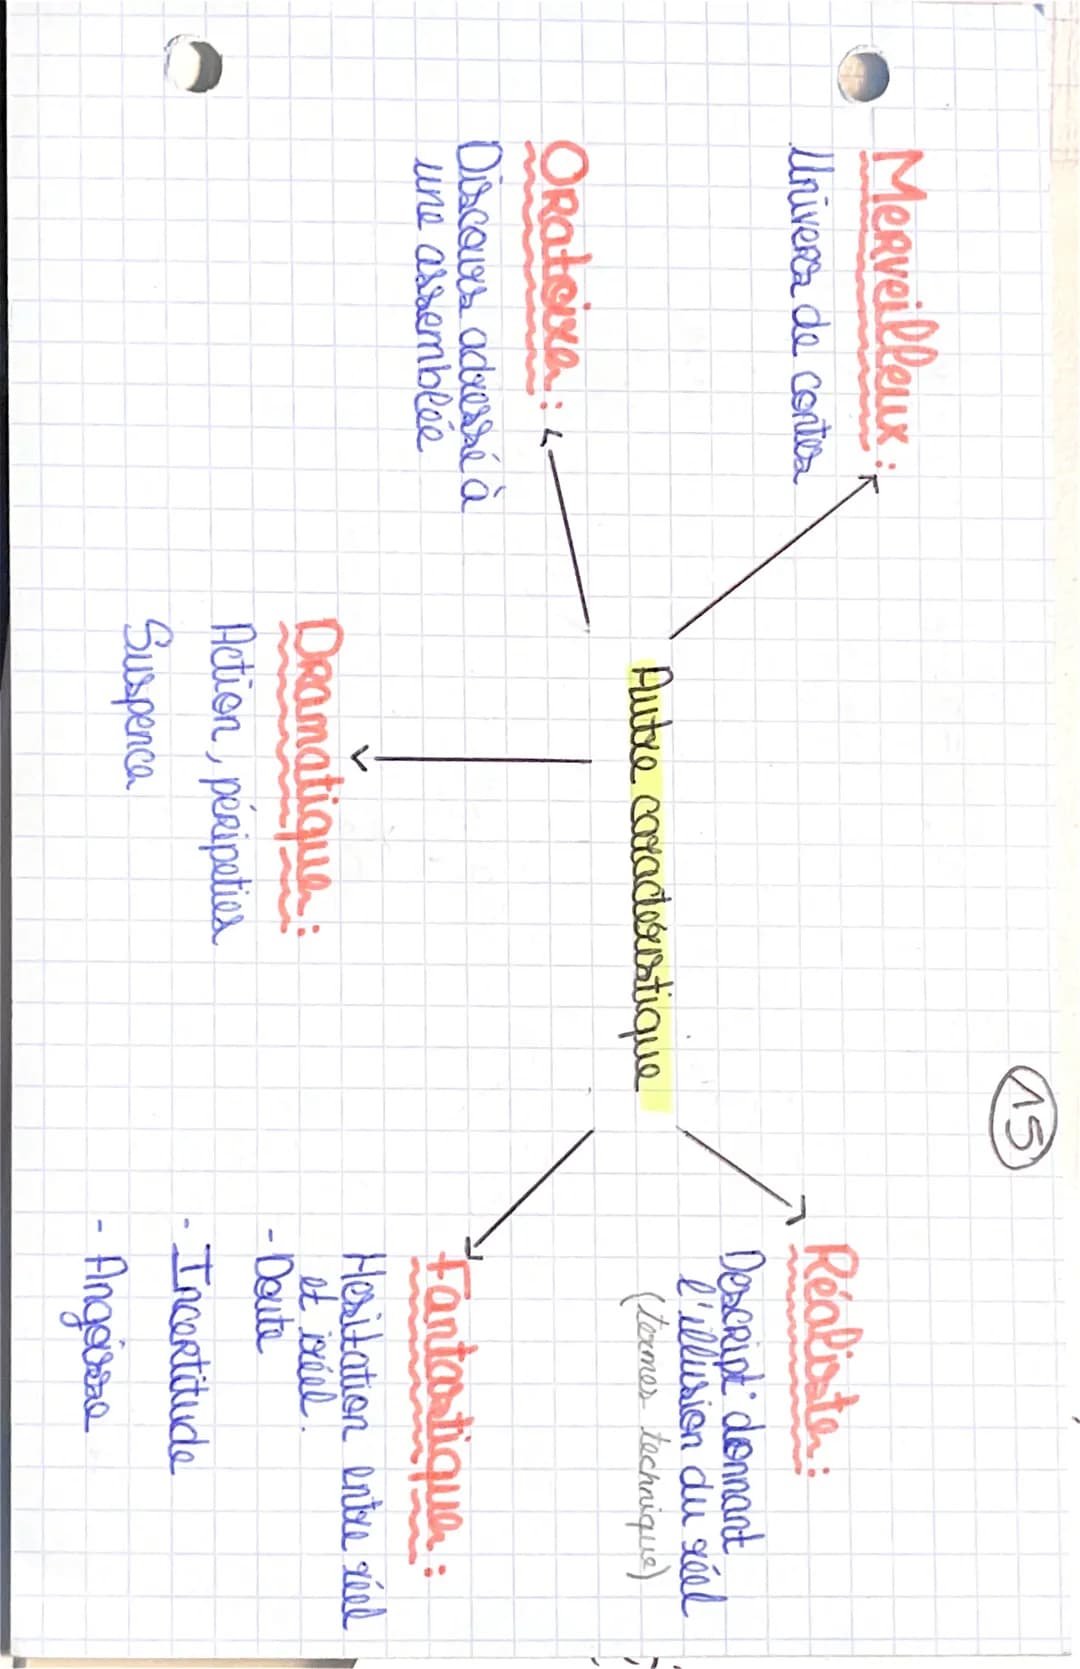 15
Merveilleux :
Univers de contes
Oratoire :
Discours adressé à
une assemblée
Autre caractéristique
Dramatique :
Action, péripeties
Suspence
Réaliste :
Descript° donnant
l'illusion du réel
(termes technique)
Fantastique :
Hesitation entre réel
et iréel.
- Doute
- Incertitude
- Angoisse